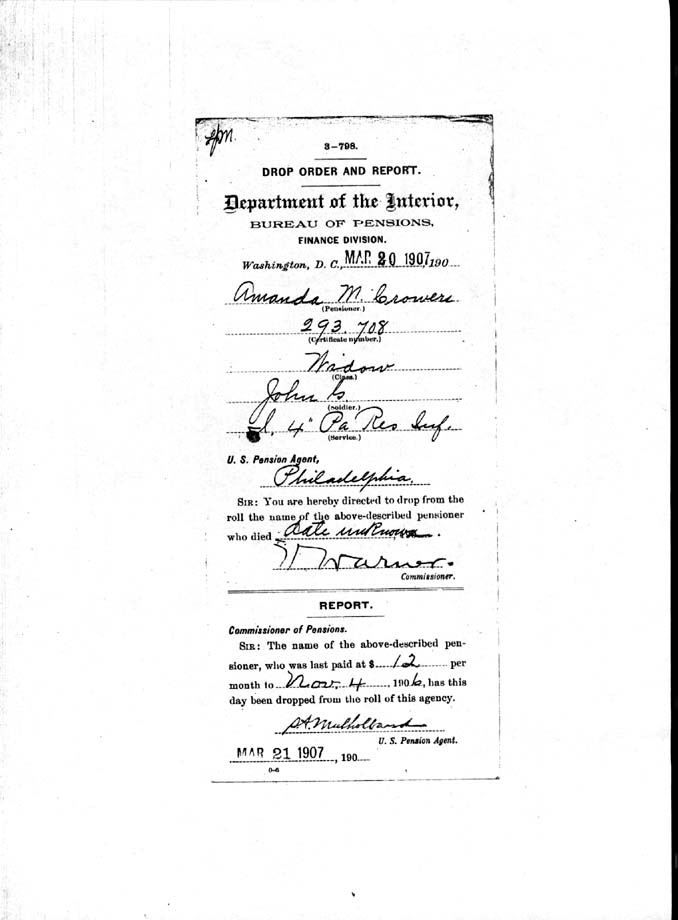 3-798.
DROP ORDER AND REPORT.
Department of the Interior,
BUREAU OF PENSIONS,
FINANCE DIVISION.
Washington, D. C., MAR 20 1907, 190
Amanda M. Crowers
(Pensioner.)
293.708
(Certificate number.)
Widow
(Class.)
John G.
(Soldier.)
4" Pa Res Inf.
(Service.)
U. S. Pension Agent,
Philadelphia.
SIR: You are hereby directed to drop from the
roll the name of the above-described pensioner
who died date unknown.
Warner.
Commissioner.
REPORT.
Commissioner of Pensions.
SIR: The name of the above-described pen-
sioner, who was last paid at $ 12 per
month to Nov. 4, 1906, has this
day been dropped from the roll of this agency.
Mulholland
U. S. Pension Agent.
MAR 21 1907, 190
0-6